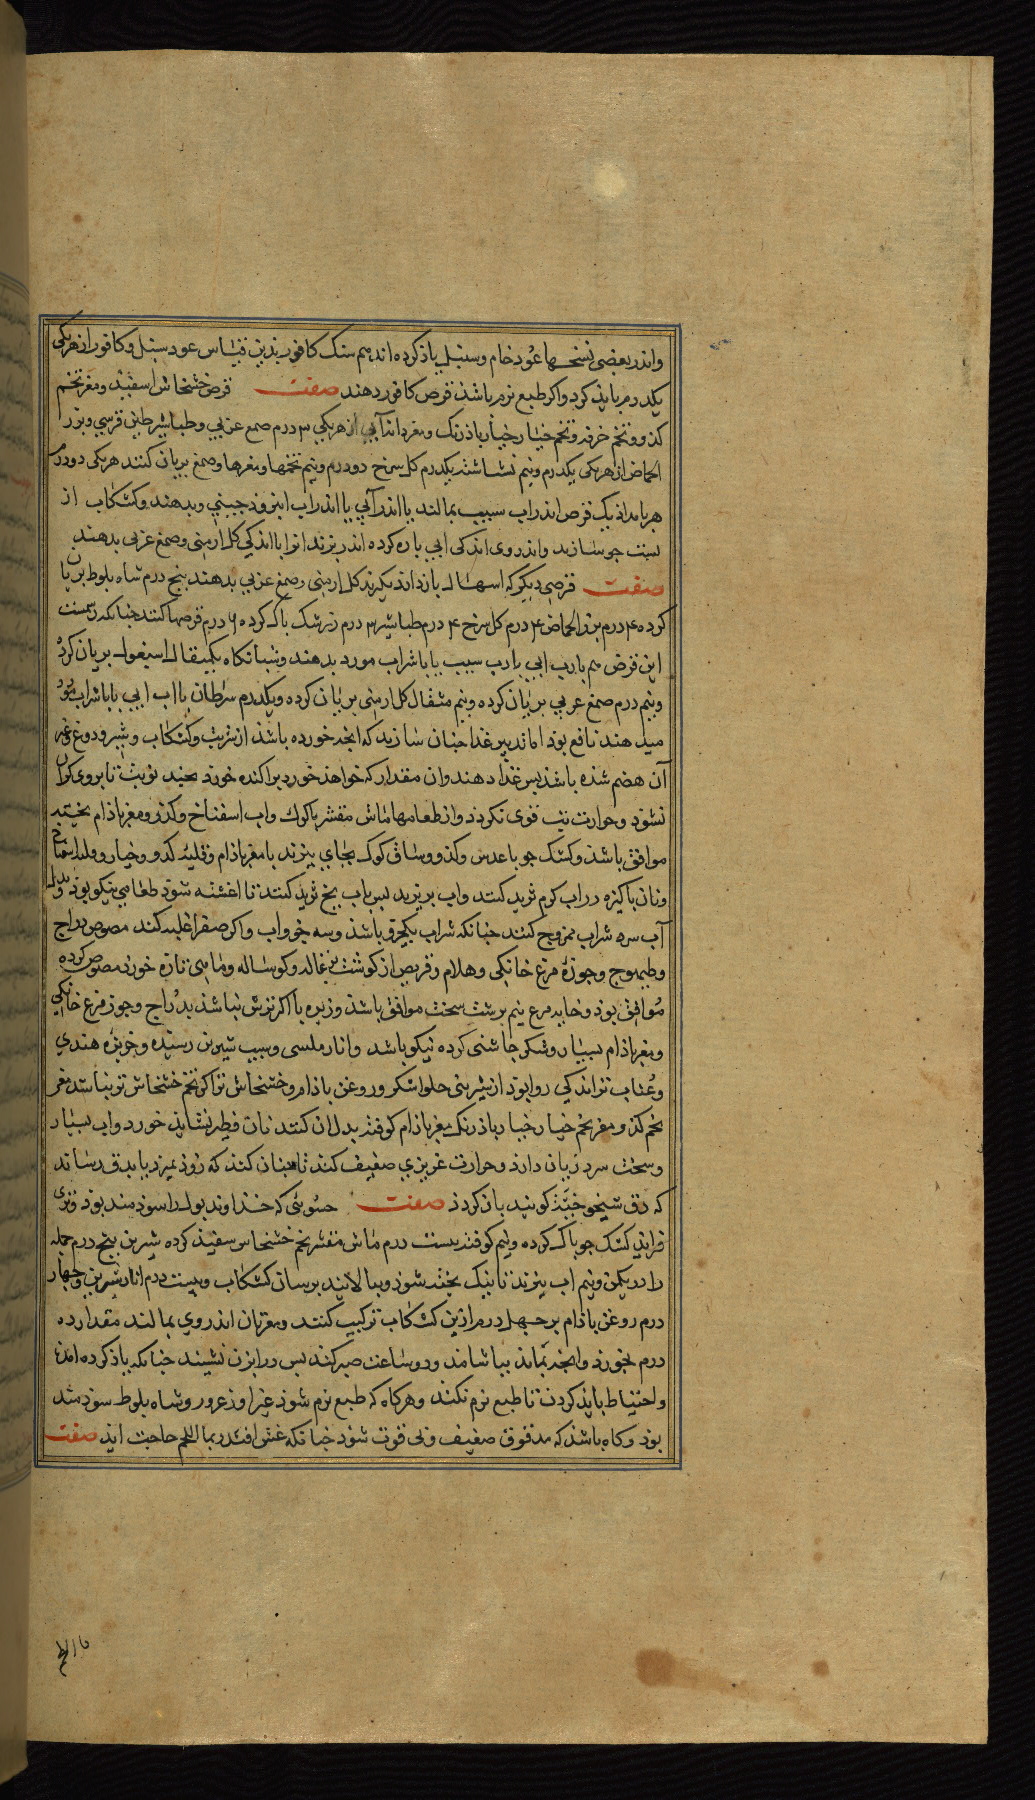 واندر بعضی نسخها عود خام وسنبل یاذ کرده اند هم سنک کافور بذین قیاس عود سنبل وکافور از هر یکی
یکدرم باید کرد واکر طبع نرم باشذ قرص کافور دهند صفت قرص خشخاش اسفیذ ومغز تخم
کذو وتخم خرفه وتخم خیار وخیار باذرنک ومغز دانه آبی از هر یکی ۳ درم صمغ عربی وطباشیر طین قرسی وبزر
الحماض از هر یکی یکدرم ونیم نشاشته یکدرم کل سرخ دودرم ونیم تخمها ومغزها وصمغ بریان کنند هر یکی دودرم
هر بامداذ یک قرص اندراب سیب بمالند یا اندر آبی یا اندراب ابنرود چینی وبدهند وکشکاب از
بست جو سازند واندروی اندکی ابی باره کرده اندر بزند انرا با اندکی کل ارمنی وصمغ عربی بدهند
صفت قرصی دیکر که اسهال بازدارد بکیرند کل ارمنی وصمغ عربی بدهند بنج درم شاه بلوط بریان
کرده ۴ درم بزر الحماض ۴ درم کل سرخ ۴ درم طباشیر ۳ درم زرشک باک کرده ۶ درم قرصها کنند جنانکه رسمست
این قرض هم بارب ابی یا رب سیب یا با شراب مورد بدهند وشبانکاه یکمثقال اسبغول بریان کرده
ونیم درم صمغ عربی بریان کرده ونیم مثقال کل ارمنی بریان کرده ویکدرم سرطان با اب ابی یا با شراب مورد
میدهند نافع بوذ اما تدبیر غذا جنان سازند که انجه خورده باشذ از شربت وکشکاب وشیر ودوغ وغیر
آن هضم شذه باشذ بس غذا دهند وان مقدار که خواهذ خورد براکنده خورد بجند نوبت تا بروی کران
نشوذ وحرارت تب قوی نکردذ واز طعامها ماش مقشر با کوک واب اسفناخ وکذو ومغز باذام بختن
موافق باشذ وکشک جو با عدس وکذو وساق کوک بجای بزند با مغز باذام وقلیه کدو وخیار وقلیه اسفناخ
ونان باکیزه در اب کرم ثرید کنند واب بریزند بس باب یخ ثرید کنند تا اغشته شوذ طعامی نیکو بوذ وبدل
آب سره شراب ممزوج کنند جنانکه شراب یکجزو باشذ وسه جزو اب واکر صفرا غلبه کند مصوص دراج
وطیهوج وجوزه مرغ خانکی وهلام وقریص از کوشت بزغاله وکوساله وماهی تازه خورد مصوص کرده
موافق بوذ وخایه مرغ نیم برشت سخت موافق باشذ وزیره با اکر ترش نباشذ بدراج وجوزه مرغ خانکی
ومغز باذام بسیار وشکر جاشنی کرده نیکو باشد وانار ملسی وسیب شیرین رسیده وخربزه هندی
وعناب تر اندکی روا بوذ از شیرینی حلوا شکر وروغن باذام وخشخاش تر اکر تخم خشخاش تر نباشد مغز
تخم کذو ومغز تخم خیار وخیار باذرنک ومغز باذام کوفته بدل ان کنند نان فطیر نشاید خورد واب بسیار
وسخت سرد زیان دارد وحرارت غریزی ضعیف کند تا جنان کند که زوذ بمیرد یا بدق رساند
که دق شیخوخیه کویند باز کردذ صفت حسوئی که خذاوند بول را سوذمند بوذ وتری
فزاید کشک جو باک کرده ونیم کوفته بیست درم ماش مقشر تخم خشخاش سفیذ کرده شیرین بنج درم جمله
را در یکمن ونیم اب بزند تا نیک بخته شوذ وببالایند برسان کشکاب وبیست درم انار شیرین وجهار
درم روغن باذام بر جهل درم ازین کشکاب ترکیب کنند ومغز نان اندروی بمالند مقدار ده
درم بخورد وانجه بماند بیاشامد ودو ساعت صبر کند بس در ابزن نشیند جنانکه یاذ کرده امد
واحتیاط باید کردن تا طبع نرم نکند وهرکاه که طبع نرم شوذ غبیرا وزعرور وشاه بلوط سوذمند
بوذ وکاه باشذ که مدقوق ضعیف وبی قوت شوذ جنانکه غشی افتد وبماء اللحم حاجت اید صفت